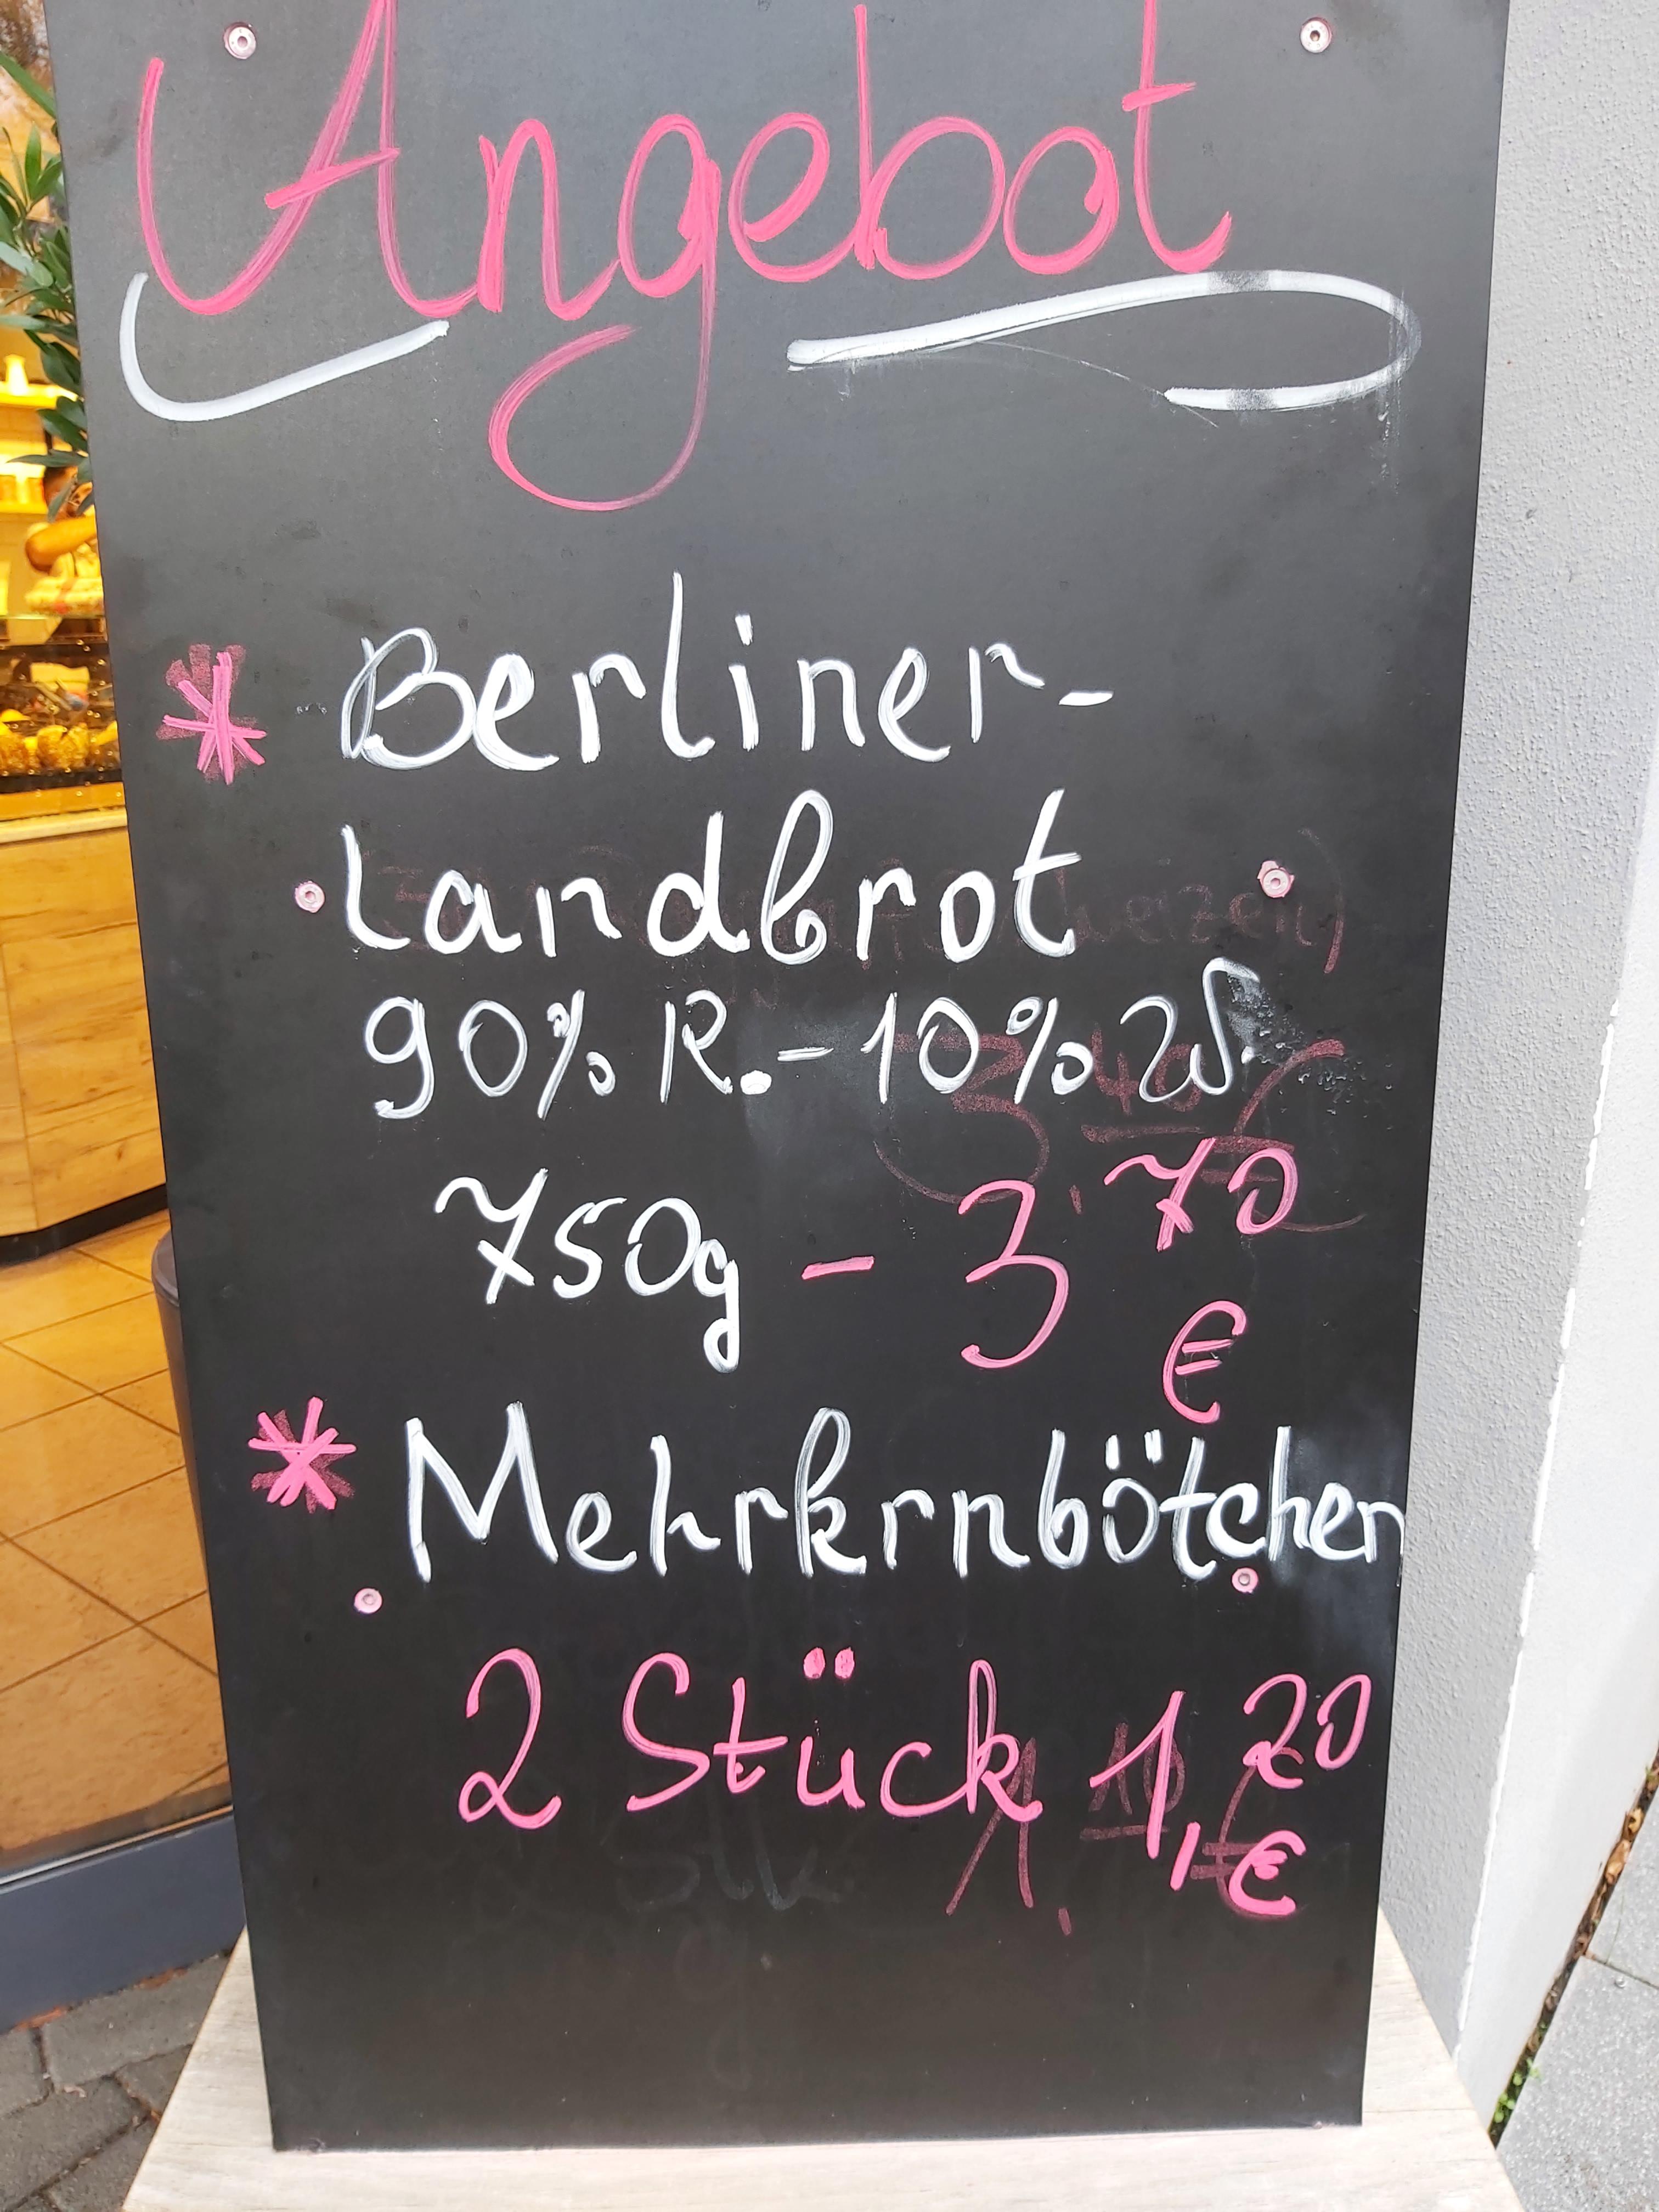 Angebot
* Berliner-
Landbrot
90% R.-10% W.
750g - 3,70
€
* Mehrkrnbötchen
2 Stück 1,20
€